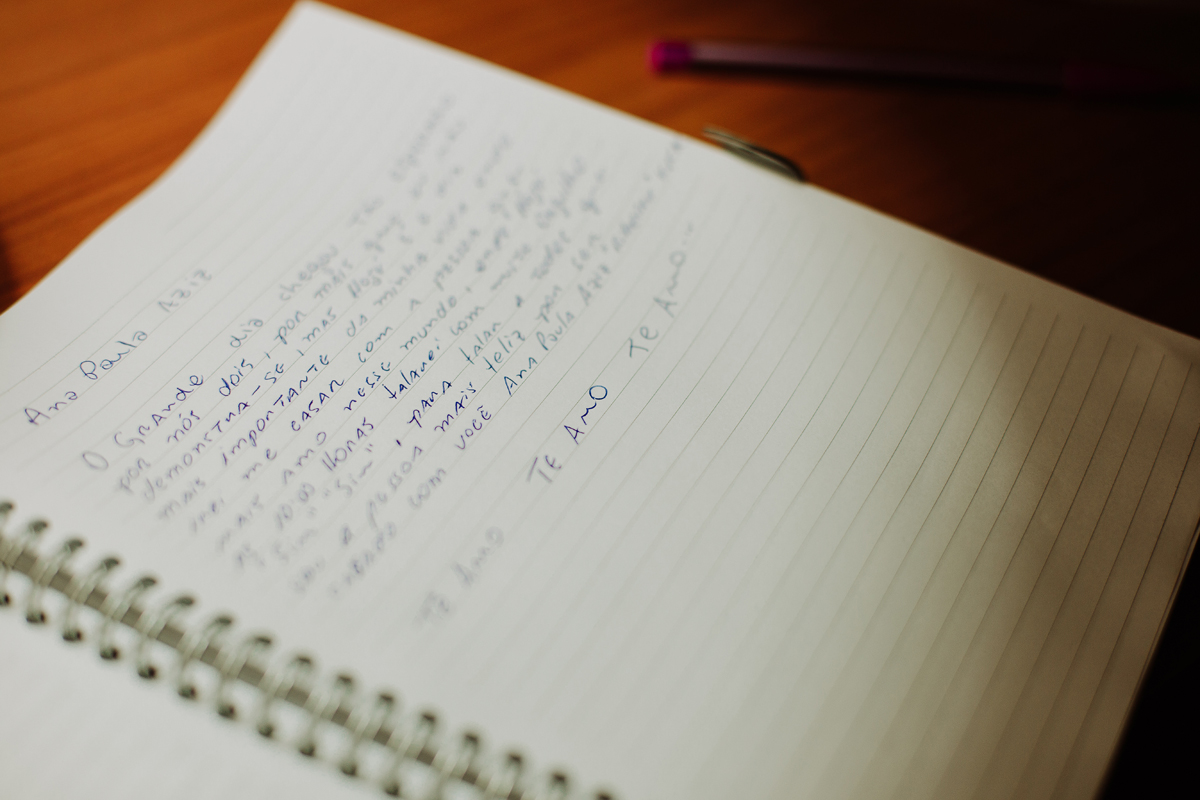 Ana Paula Aziz
O Grande dia chegou tão esperado
por nós dois, por mais que
demonstra-se, mas hoje é o dia
mais importante da minha vida
irei me casar com a pessoa que
mais amo nesse mundo, hoje
as Horas falarei com muito orgulho
Sim "Sim", para falar a todos que
sou a pessoa mais feliz por ser
casado com você Ana Paula Aziz
Te Amo Te Amo Te Amo...